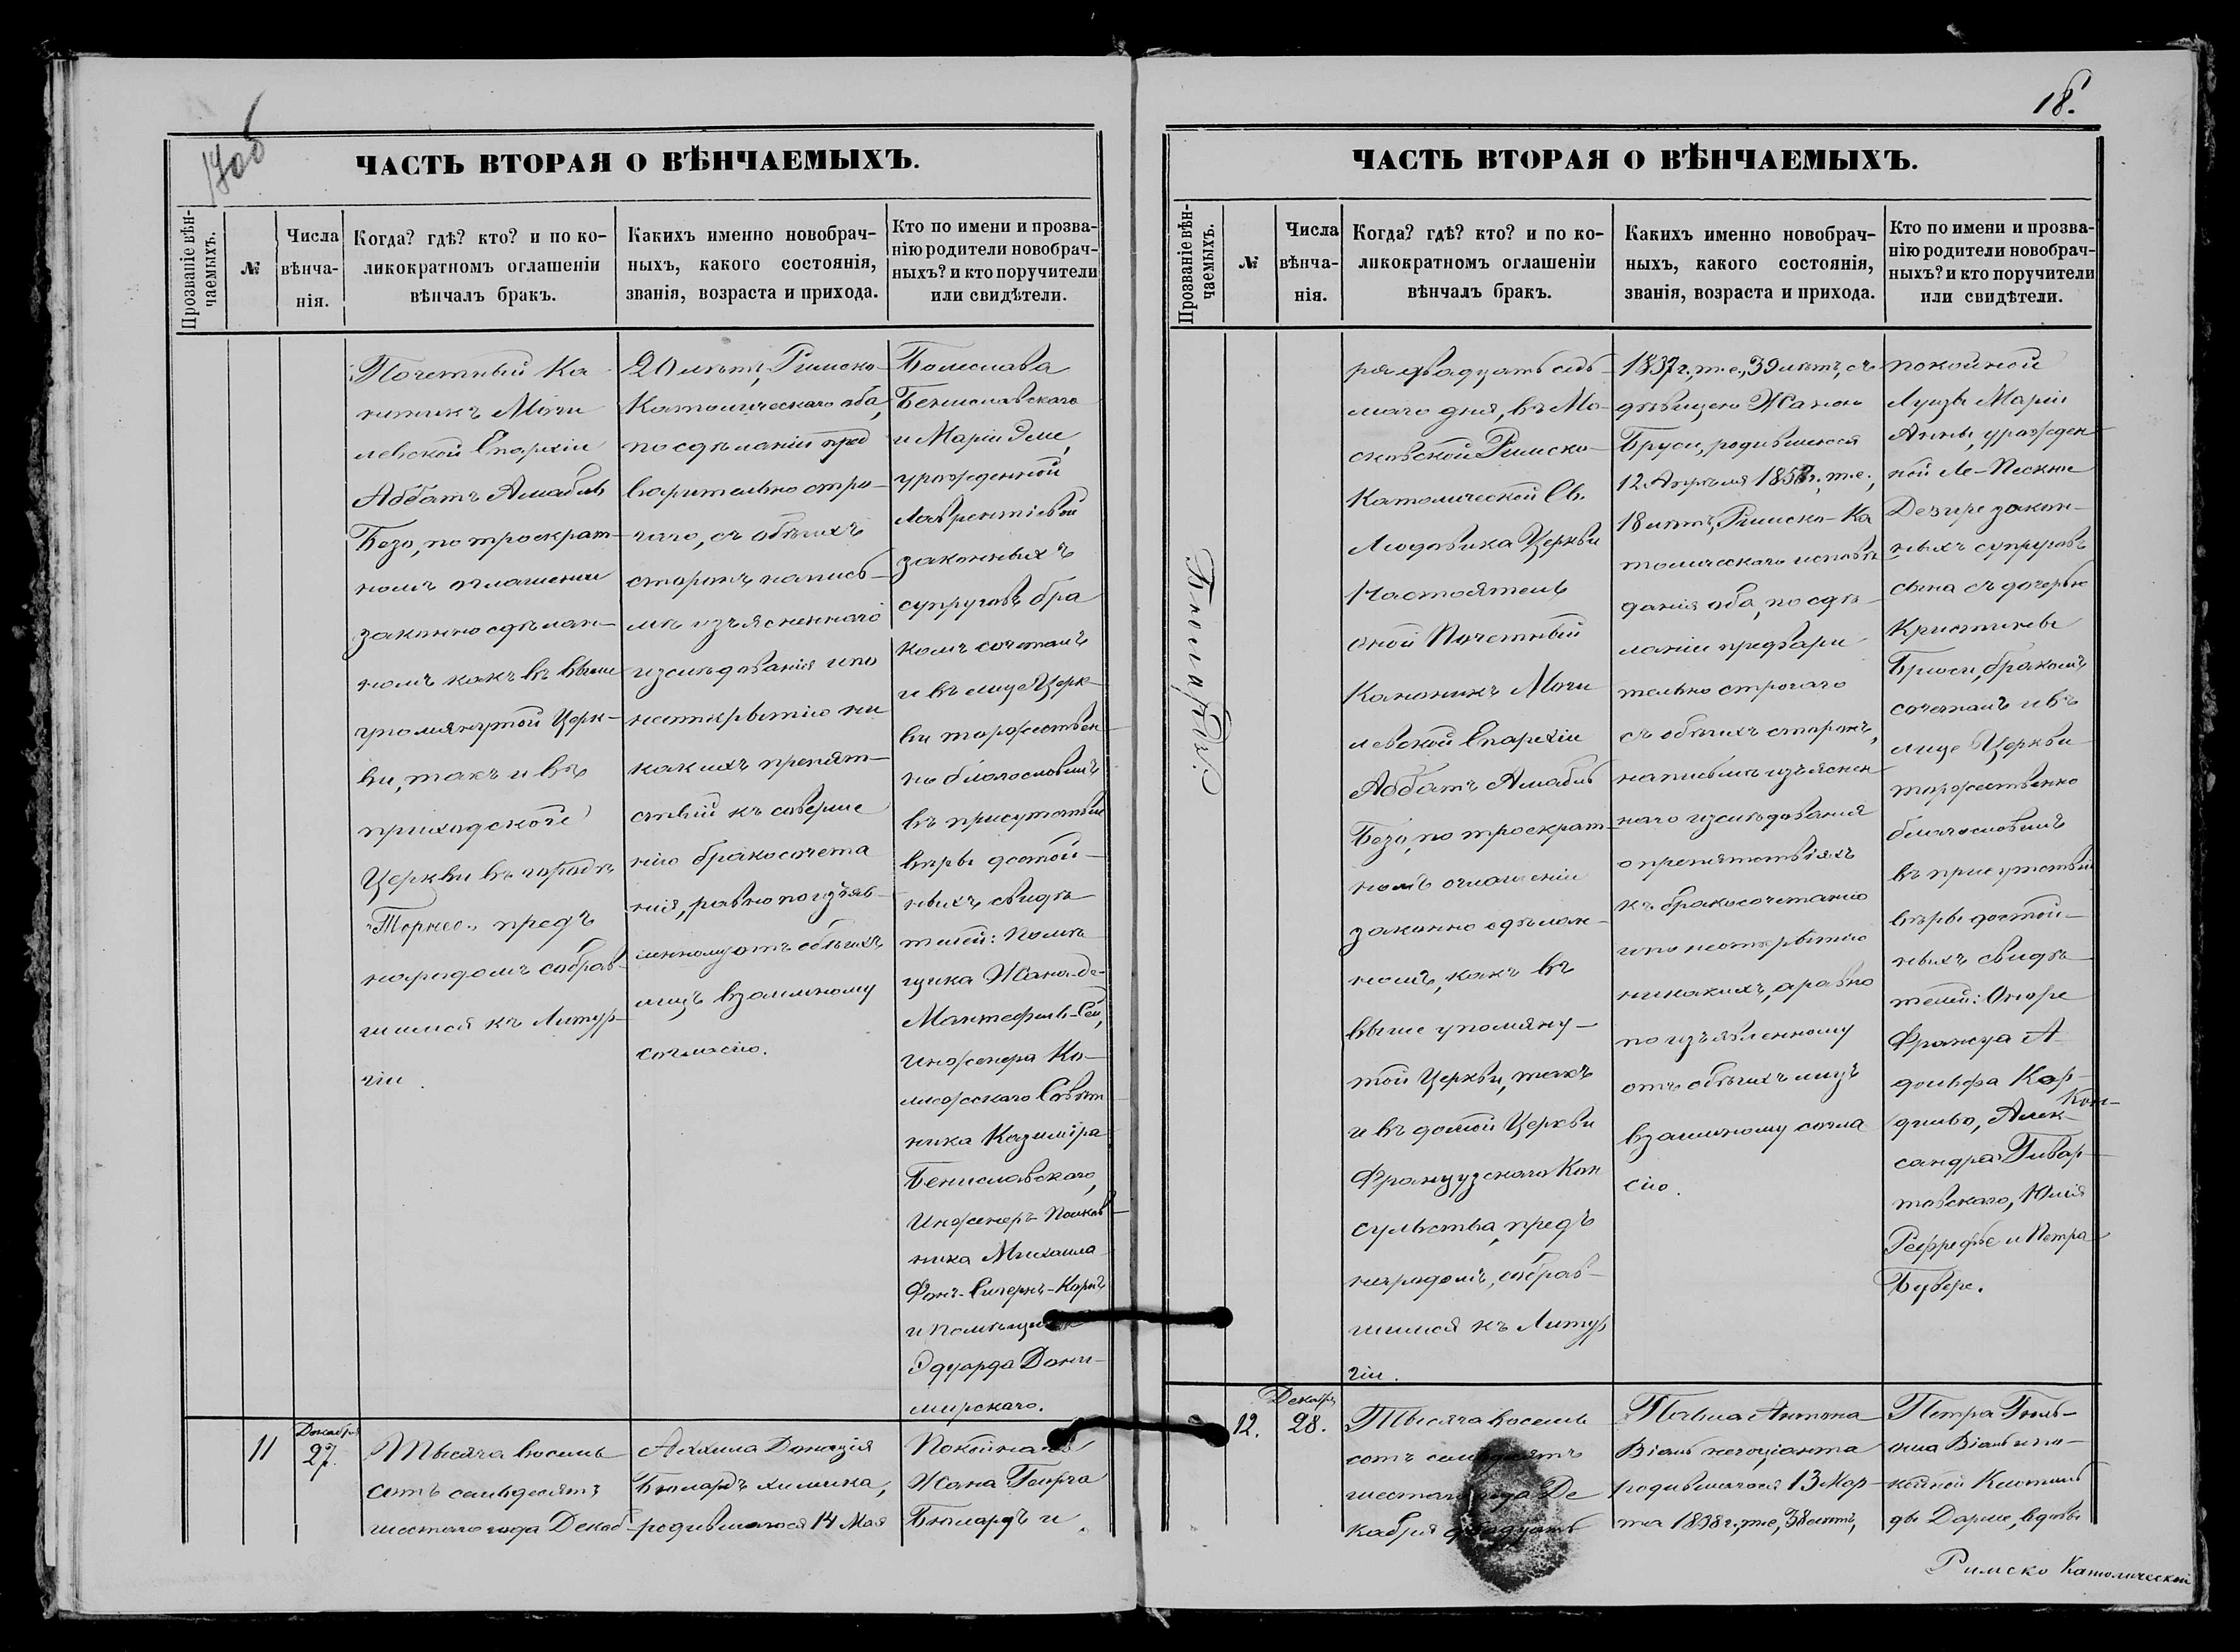 ЧАСТЬ ВТОРАЯ О ВѢНЧАЕМЫХЪ.
Прозваніе вѣн-
чаемыхъ.
№
Числа
вѣнча-
нія.
Когда? гдѣ? кто? и по ко-
ликократномъ оглашеніи
вѣнчалъ бракъ.
Какихъ именно новобрач-
ныхъ, какого состоянія,
званія, возраста и прихода.
Кто по имени и прозва-
нію родители новобрач-
ныхъ? и кто поручители
или свидѣтели.
Почетный Ка
ноникъ Моги
левской Епархіи
Аббатъ Амабль
Безо, по троекрат-
номъ оглашеніи
законно сдѣлан-
номъ какъ въ выше
упомянутой Церк-
ви, такъ и въ
приходской
Церкви въ городѣ
"Торнео" предъ
народомъ собрав-
шимся къ Литур-
гіи.
20 лѣтъ, Римско-
Католическаго оба,
по сдѣланіи пред
варительно стро-
гаго, съ обѣихъ
сторонъ на пись-
мѣ изъясненнаго
изслѣдованія и по
неоткрытію ни
какихъ препят-
ствій къ соверше
нію бракосочета
нія, равно по изъяв-
ленному отъ обѣихъ
лицъ взаимному
согласію.
Болеслава
Бениславскаго
и Маріи Эме,
урожденной
Лаврентіевой
законныхъ
супруговъ бра
комъ сочеталъ
и въ лицѣ Церк-
ви торжествен-
но благословилъ
въ присутствіи
вѣры достой-
ныхъ свидѣ-
телей: Помѣ
щика Жана-де-
Мантефель-Сеи,
Инженера Ко-
ллежскаго Совѣт-
ника Казимира
Бениславскаго,
Инженеръ Полков-
ника Михаила
Фонъ-Сигернъ-Корнъ
и Помѣщика
Эдуарда Доми-
мирскаго.
11
Декабря
27.
Тысяча восемь
сотъ семьдесятъ
шестаго года Декаб-
Ахилла Донація
Бюлардъ химика,
родившагося 14 Мая
Покойнаго
Жана Георга
Бюлардъ и
18.
ЧАСТЬ ВТОРАЯ О ВѢНЧАЕМЫХЪ.
Прозваніе вѣн-
чаемыхъ.
№
Числа
вѣнча-
нія.
Когда? гдѣ? кто? и по ко-
ликократномъ оглашеніи
вѣнчалъ бракъ.
Какихъ именно новобрач-
ныхъ, какого состоянія,
званія, возраста и прихода.
Кто по имени и прозва-
нію родители новобрач-
ныхъ? и кто поручители
или свидѣтели.
Бюлардъ.
ря двадцать седь-
маго дня, въ Мо-
сковской Римско-
Католической Св.
Людовика Церкви
Настоятель
оной Почетный
Каноникъ Моги
левской Епархіи
Аббатъ Амабль
Безо, по троекрат-
номъ оглашеніи
законно сдѣлан-
номъ, какъ въ
выше упомяну-
той Церкви, такъ
и въ домой Церкви
Французскаго Кон
сульства, предъ
народомъ, собрав-
шимся къ Литур
гіи.
1837 г., т.е., 39 лѣтъ, съ
дѣвицею Жанною
Бруси, родившеюся
12 Апрѣля 1858 г., т.е.,
18 лѣтъ, Римско-Ка
толическаго исповѣ
данія оба, по сдѣ-
ланіи предвари
тельно строгаго
съ обѣихъ сторонъ,
на письмѣ изъяснен
наго изслѣдованія
о препятствіяхъ
къ бракосочетанію
и по неоткрытію
никакихъ, а равно
по изъявленному
отъ обѣихъ лицъ
взаимному согла
сію.
покойной
Луизы Маріи
Анны, урожден-
ной Ле-Пеские
Дезире закон-
ныхъ супруговъ
сына съ дочерью
Кристины
Брюси, бракомъ
сочеталъ и въ
лицѣ Церкви
торжественно
благословилъ
въ присутствіи
вѣры достой-
ныхъ свидѣ-
телей: Оноре
Франсуа А-
дольфа Кор-
Кон-
дильо, Алек-
сандра Гивар-
товскаго, Юлія
Реффефье и Петра
Бувере.
12.
Декабря
28.
Тысяча восемь
сотъ семьдесятъ
шестаго года Де
кабря двадцать
Павла Антона
Віаль негоціанта
родившагося 13 Мар-
та 1838 г., т.е., 38 лѣтъ,
Петра Гиль-
ома Віаль и по-
койной Клотиль
ды Дарме, вдовы
Римско Католической